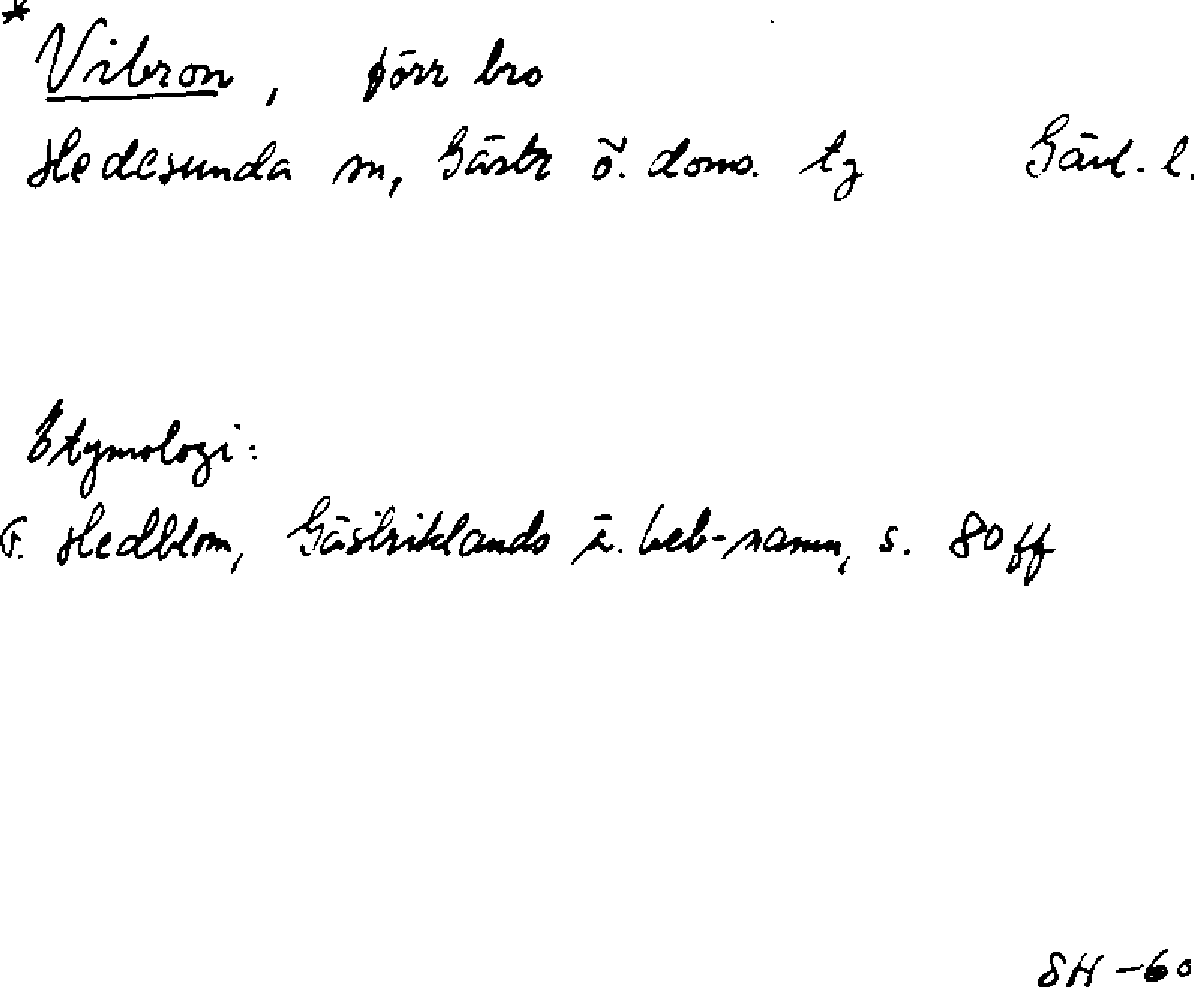 * Vibron, förr bro
Hedesunda sn, Gästr ö. doms. tg Gävl. l.
Etymologi:
F. Hedblom, Gästriklands ä. beb-namn, s. 80 ff
SH -60